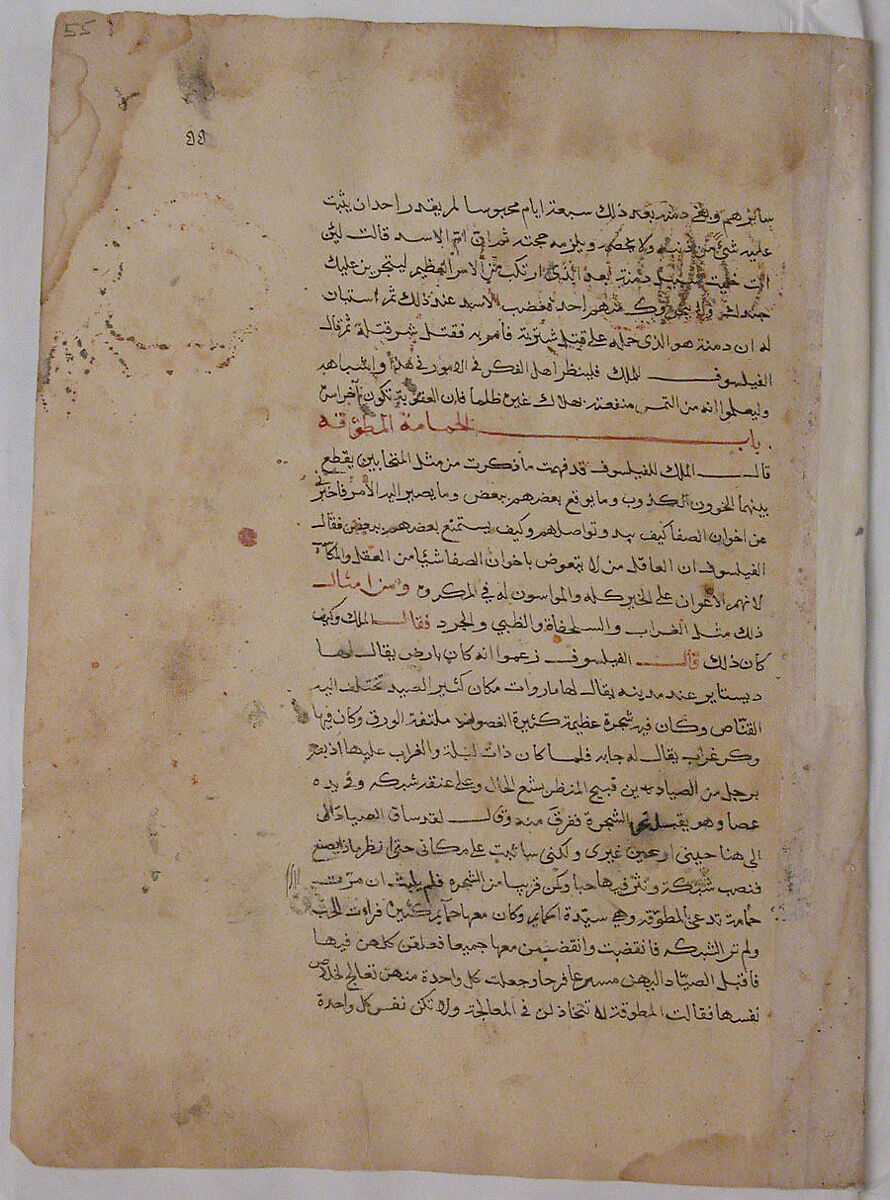 55
سايرهم وبقي دمنه بعد ذلك سبعة ايام محبوسا لم يقدر احد ان يثبت
عليه شيئا من ولا يخصمه ويلزمه حجته ثم ان ام الاسد قالت لئن
انت خليت سبيل دمنة بعد الذي ارتكب من الامر العظيم ليتجرين عليك
جندك منهم احد فغضب الاسد عند ذلك ثم استبان
له ان دمنة هو الذي حمله على قتل شتربة فأمر به فقتل شر قتلة ثم قال
الفيلسوف للملك فلينظر اهل الفكر في الامور في هذا واشباهه
وليعلموا انه من التمس منفعته بهلاك غيره ظلما فان العقوبة تكون آخر امره
باب الحمامة المطوقه
قال الملك للفيلسوف قد فهمت ما ذكرت من مثل المتحابين يقطع
بينهما الخوون الكذوب وما يوقع بعضهم ببعض وما يصير اليه الأمر فاخبرني
عن اخوان الصفا كيف يبدو تواصلهم وكيف يستمتع بعضهم ببعض فقال
الفيلسوف ان العاقل من لا يتعوض باخوان الصفا شيئا من العقد والمكاسب
لانهم الأعوان على الخير كله والمواسون له في المكروه ومن امثال
ذلك مثل الغراب والسلحفاة والظبي والجرد فقال الملك وكيف
كان ذلك قال الفيلسوف زعموا انه كان بارض يقال لها
دستاير عند مدينه يقال لها ماروات مكان كثير الصيد تختلف اليه
القناص وكان فيه شجرة عظيمة كثيرة الغصون ملتفة الورق وكان فيها
وكر غراب يقال له جاير فلما كان ذات ليلة والغراب عليها اذ بصر
برجل من الصيادين قبيح المنظر بشع الحال وعلى عنقه شبكه وفي يده
عصا وهو يقبل نحو الشجرة ففرق منه وقال لقد ساق الصياد الى
الى هنا حيني او حين غيري ولكني ساثبت على مكاني حتى انظر ماذا يصنع
فنصب شبكته ونثر فيها حبا وكمن قريبا من الشجرة فلم يلبث ان مرت
حمامة تدعى المطوقه وهي سيدة الحمام وكان معها حمايم كثيرة فراوت الحب
ولم تر الشبكه فانقضت وانقضين معها جميعا فعلقن كلهن فيها
فاقبل الصياد اليهن مسرعا فرحا وجعلت كل واحدة منهن تعالج لخلاص
نفسها فقالت المطوقة لا تتخاذلن في المعالجة ولا تكن نفس كل واحدة